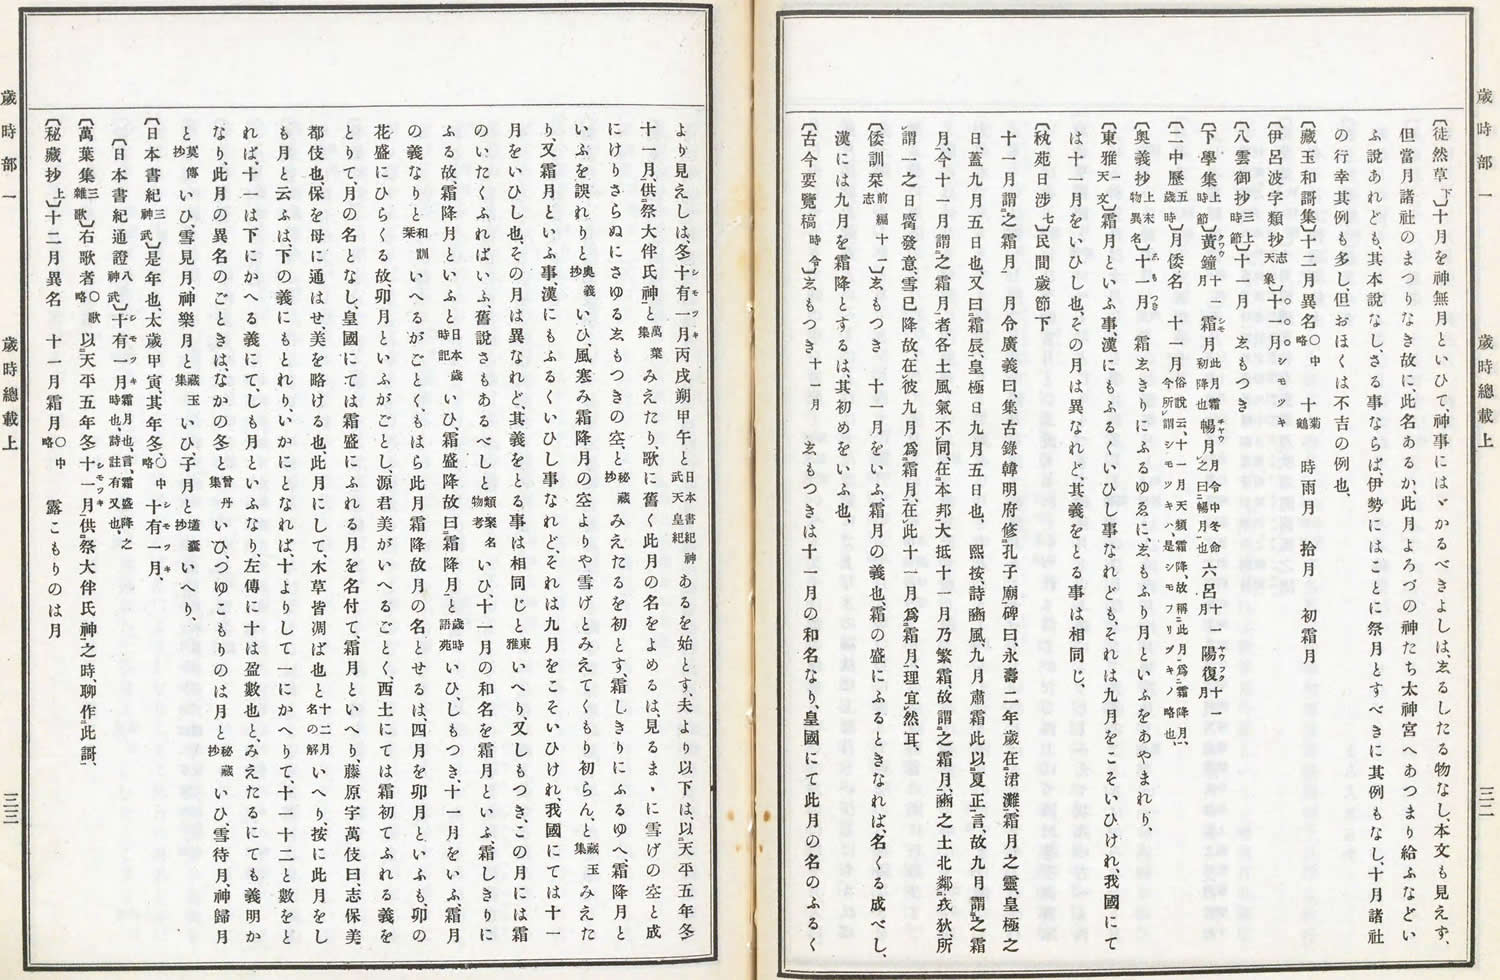 歲時部一　歲時總載上　三二
〔徒然草下〕十月を神無月といひて、神事にはゞかるべきよしは、しるしたる物なし、本文も見えず、
但當月諸社のまつりなき故に此名あるか、此月よろづの神たち太神宮へあつまり給ふなどい
ふ說あれども、其本說なし、さる事ならば、伊勢にはことに祭月とすべきに其例もなし、十月諸社
の行幸其例も多し、但おほくは不吉の例也、
〔藏玉和謌集〕十二月異名〇中略　十菊鶴　時雨月　拾月　初霜月
〔伊呂波字類抄志天象〕十一月シモツキ
〔八雲御抄三上時節〕十一月　しもつき
〔下學集上時節〕黃鐘クワウ十一月　霜シモ月此月霜初降也　暢チヤウ月月令中冬命之曰暢月也　六呂十一月　一陽復ヤウフク十一月
〔二中歷五歲時〕月倭名　十一月俗說云、十一月天頻霜降、故稱此月爲霜降月、今所謂シモツキハ、是シモフリヅキノ略也、
〔奧義抄上末物異名〕十一月しもつき　霜しきりにふるゆゑに、しもふり月といふをあやまれり、
〔東雅一天文〕霜月といふ事、漢にもふるくいひし事なれども、それは九月をこそいひけれ、我國にて
は十一月をいひし也、その月は異なれど、其義をとる事は相同じ、
〔秇苑日涉七〕民間歲節下
十一月謂之霜月　月令廣義曰、集古錄韓明府修孔子廟碑曰、永壽二年歲在涒灘、霜月之靈、皇極之
日、蓋九月五日也、又曰、霜辰、皇極日九月五日也、　熙按、詩豳風、九月肅霜此以夏正言、故九月謂之霜
月、今十一月謂之霜月者、各土風氣不同、在本邦大抵十一月乃繁霜、故謂之霜月、豳之土北鄰戎狄、所
謂一之日觱發意、雪已降故、在彼九月爲霜月、在此十一月爲霜月、理宜然耳、
〔倭訓栞前編十一志〕しもつき　十一月をいふ、霜月の義也、霜の盛にふるときなれば、名くる成べし、
漢には九月を霜降とするは、其初めをいふ也、
〔古今要覽稿時令〕しもつき十一月　しもつきは十一月の和名なり、皇國にて此月の名のふるく
歲時部一　歲時總載上　三三
より見えしは、冬十有一月シモツキ丙戌朔甲午と日本書紀神武天皇紀あるを始とす、夫より以下は、以天平五年冬
十一月、供祭大伴氏神と萬葉集みえたり、歌に舊く此月の名をよめるは、見るまゝに雪げの空と成
にけりさらぬにさゆるしもつきの空と秘藏抄みえたるを初とす、霜しきりにふるゆへ、霜降月と
いふを誤れりと奧義抄いひ、風寒み霜降月の空よりや雪げとみえてくもり初らん、と藏玉集みえた
り、又霜月といふ事、漢にもふるくいひし事なれど、それは九月をこそいひけれ、我國にては十一
月をいひし也、その月は異なれど、其義をとる事は相同じと東雅いへり、又しもつき、この月には霜
のいたくふればいふ舊說さもあるべしと類聚名物考いひ、十一月の和名を霜月といふ、霜しきりに
ふる故霜降月といふと日本歲時記いひ、霜盛降故曰霜降月と歲時語苑いひ、しもつき、十一月をいふ霜月
の義なりと和訓栞いへるがごとく、もはら此月霜降故月の名とせるは、四月を卯月といふも、卯の
花盛にひらくる故卯月といふがごとし、源君美がいへるごとく、西土にては霜初てふれる義を
とりて、月の名となし、皇國にては霜盛にふれる月を名付て、霜月といへり、藤原宇萬伎曰、志保美
都伎也保を母に通はせ、美を略ける也、此月にして木草皆凋ば也と十二月名の解いへり、按に此月をし
も月と云ふは、下の義にもとれり、いかにとなれば、十よりして一にかへりて、十一十二と數をと
れば、十一は下にかへる義にて、しも月といふなり、左傳に十は盈數也と、みえたるにても義明か
なり、此月の異名のごときは、なかの冬と曾丹集いひ、つゆこもりのは月と秘藏抄いひ雪待月、神歸月
と莫傳抄いひ、雪見月、神樂月と藏玉集いひ、子月と壒囊抄いへり、
〔日本書紀三神武〕是年也、太歲甲寅、其年冬、〇中略十有一月シモツキ、
〔日本書紀通證八神武〕十有一月シモツキ霜月也、言、霜盛降之時也、詩註有又也、
〔萬葉集三雜歌〕右歌者〇歌略以天平五年冬十一月シモツキ、供祭大伴氏神之時、聊作此謌、
〔秘藏抄上〕十二月異名　十一月霜月〇中略　露こもりのは月